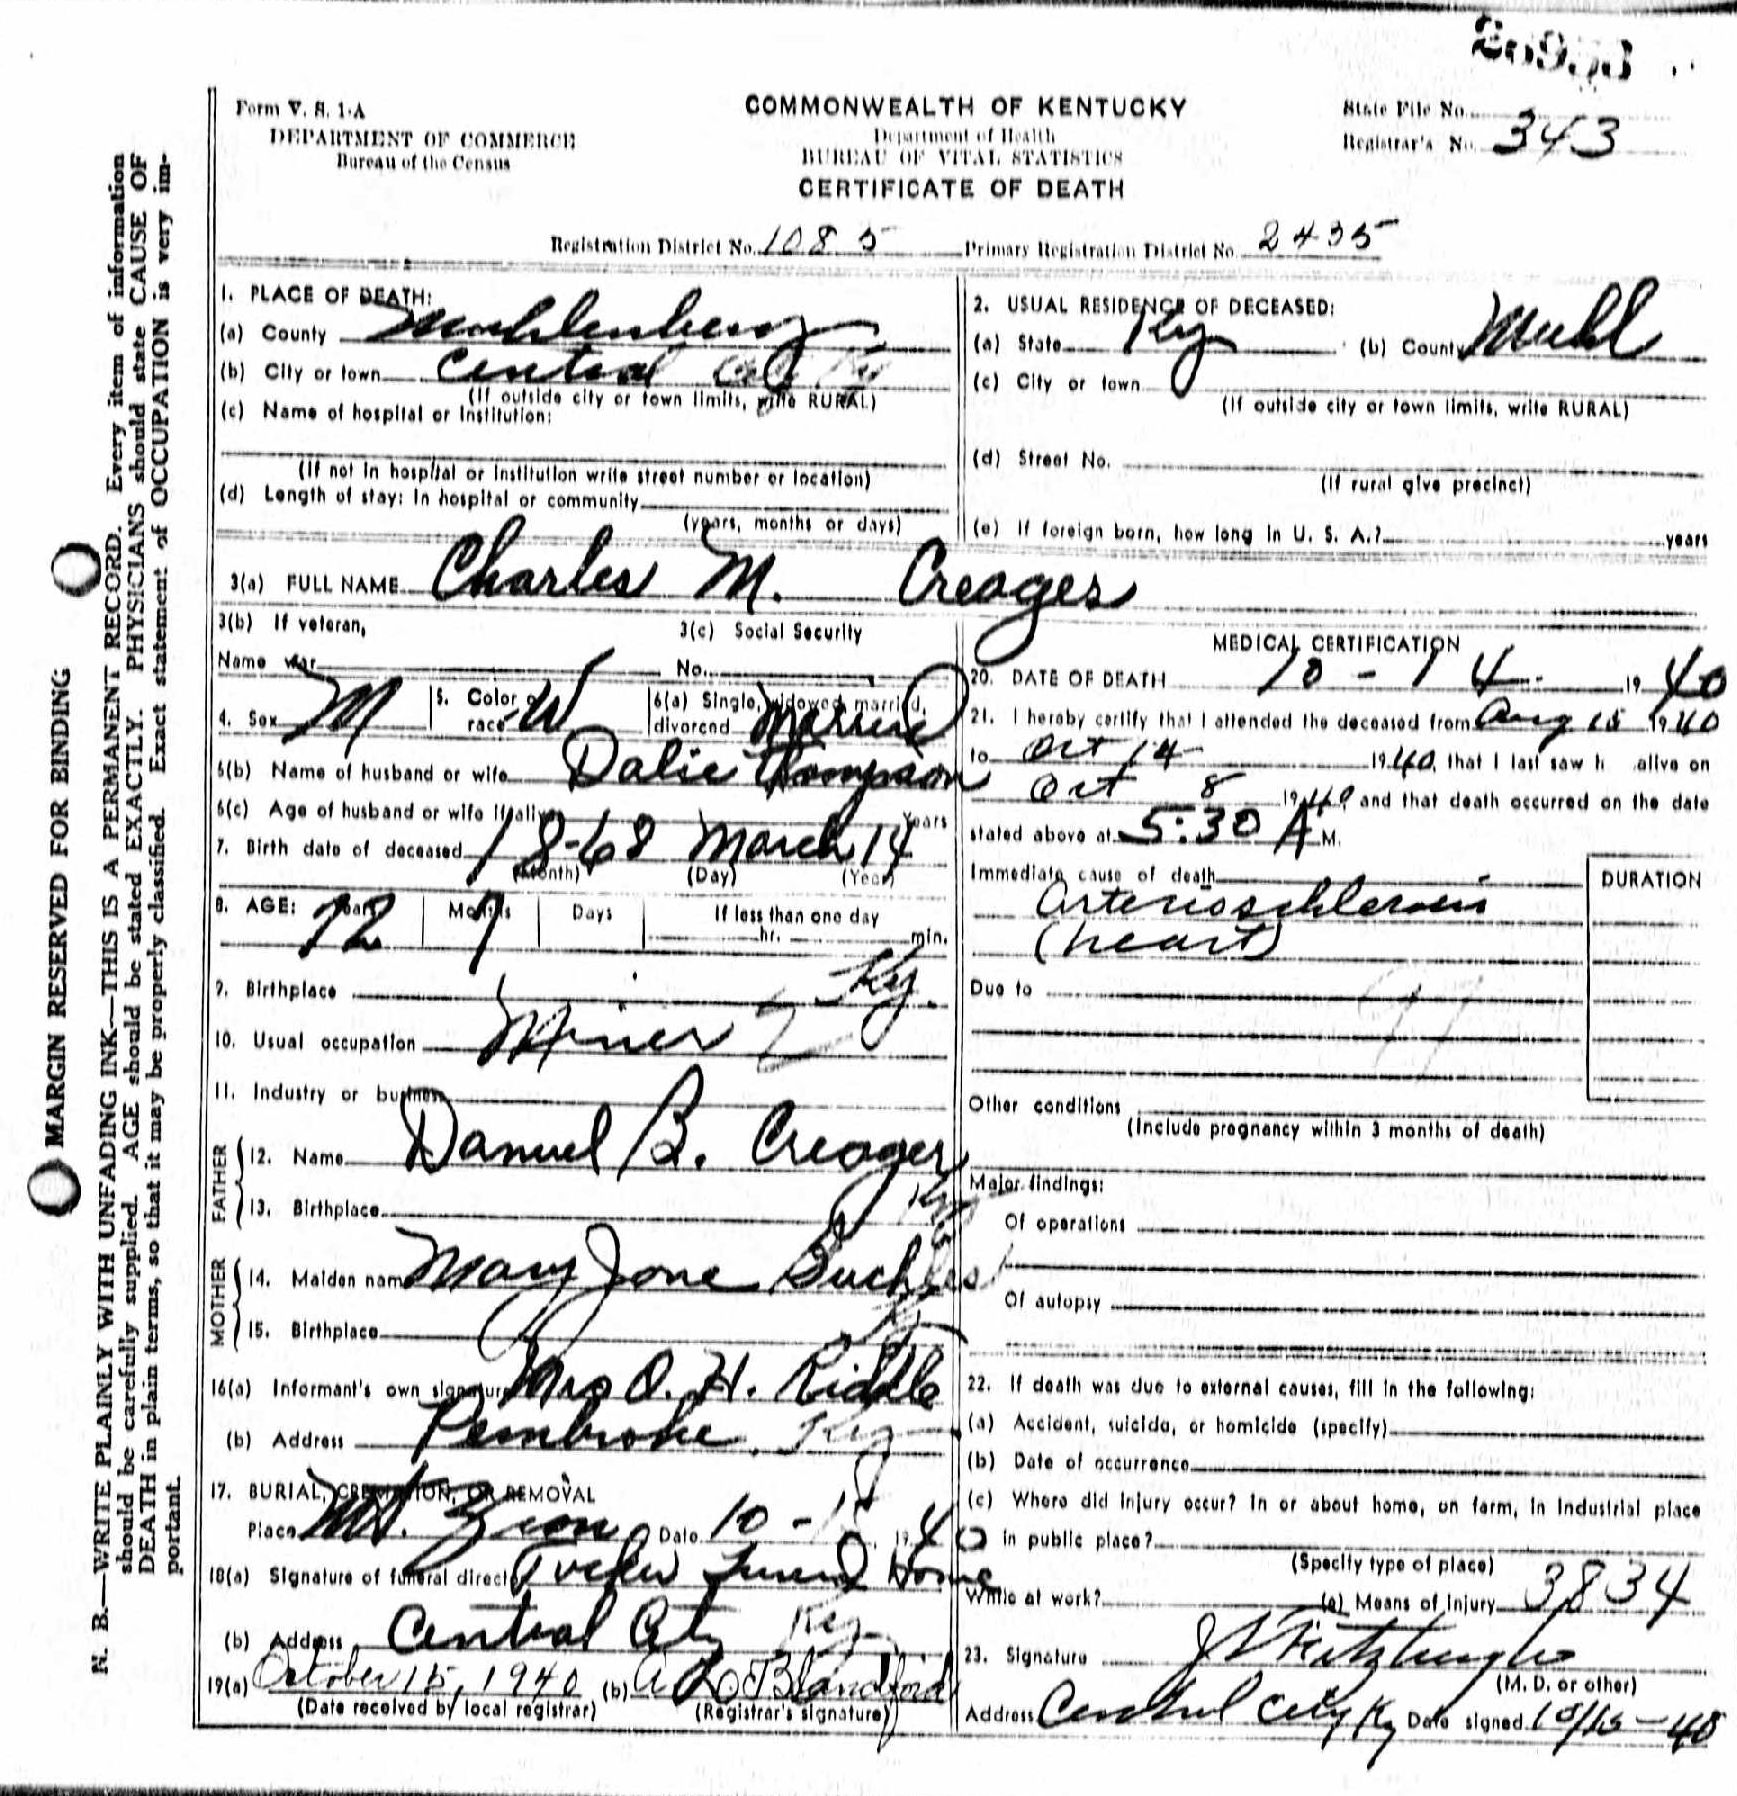 Form V. S. 1-A
DEPARTMENT OF COMMERCE
Bureau of the Census
COMMONWEALTH OF KENTUCKY
Department of Health
BUREAU OF VITAL STATISTICS
CERTIFICATE OF DEATH
State File No.
Registrar's No. 343
Registration District No. 1085 Primary Registration District No. 2435
1. PLACE OF DEATH:
(a) County Muhlenberg
(b) City or town Central City Ky
(If outside city or town limits, write RURAL)
(c) Name of hospital or Institution:
(If not in hospital or institution write street number or location)
(d) Length of stay: In hospital or community
(years, months or days)
2. USUAL RESIDENCE OF DECEASED:
(a) State Ky (b) County Muhl
(c) City or town
(If outside city or town limits, write RURAL)
(d) Street No.
(If rural give precinct)
(e) If foreign born, how long in U. S. A.? years
3(a) FULL NAME Charles M. Creager
3(b) If veteran, 3(c) Social Security
Name war No.
4. Sex M 5. Color or race W 6(a) Single, widowed, married, divorced Married
6(b) Name of husband or wife Dalie Thompson
6(c) Age of husband or wife if alive Years
7. Birth date of deceased 1868 March 14
(Month) (Day) (Year)
8. AGE: Years 72 Months 7 Days If less than one day
hr. min.
9. Birthplace Ky.
10. Usual occupation Miner
11. Industry or business
FATHER
12. Name Danuel B. Creager
13. Birthplace Ky
MOTHER
14. Maiden name Mary Jane
15. Birthplace Ky
16(a) Informant's own signature Mrs O. H. Riddle
(b) Address Pembroke, Ky
17. BURIAL, CREMATION, OR REMOVAL
Place Mt. Zion Date 10-15 1940
18(a) Signature of funeral director Funeral Home
(b) Address Central City Ky
19(a) October 15, 1940 (b) Blandford
(Date received by local registrar) (Registrar's signature)
MEDICAL CERTIFICATION
20. DATE OF DEATH 10-14- 1940
21. I hereby certify that I attended the deceased from Aug 15 1940
to Oct 14 1940, that I last saw h alive on
Oct 8 1940 and that death occurred on the date
stated above at 5:30 A M.
Immediate cause of death
DURATION
Arterioschlerosis
(heart)
Due to
Other conditions
(Include pregnancy within 3 months of death)
Major findings:
Of operations
Of autopsy
22. If death was due to external causes, fill in the following:
(a) Accident, suicide, or homicide (specify)
(b) Date of occurrence
(c) Where did injury occur? In or about home, on farm, in industrial place
in public place?
(Specify type of place)
While at work? (e) Means of injury 3834
23. Signature Fitzhugh
(M. D. or other)
Address Central City Ky Date signed 10/15-40
MARGIN RESERVED FOR BINDING
N. B.—WRITE PLAINLY WITH UNFADING INK—THIS IS A PERMANENT RECORD. Every item of information
should be carefully supplied. AGE should be stated EXACTLY. PHYSICIANS should state CAUSE OF
DEATH in plain terms, so that it may be properly classified. Exact statement of OCCUPATION is very im-
portant.